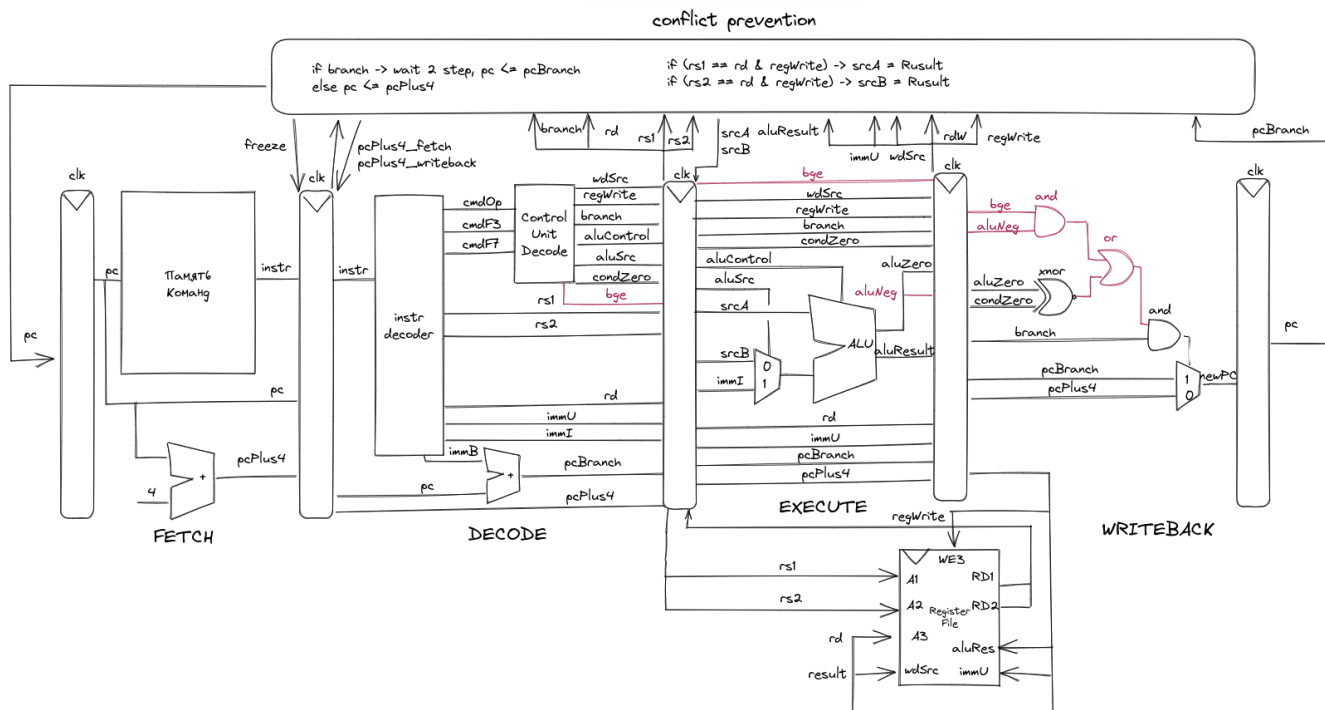 conflict prevention
if branch -> wait 2 step, pc <= pcBranch
else pc <= pcPlus4
if (rs1 == rd & regWrite) -> srcA = Rusult
if (rs2 == rd & regWrite) -> srcB = Rusult
freeze
pcPlus4_fetch
pcPlus4_writeback
branch
rd
rs1
rs2
srcA
srcB
aluResult
immU
wdSrc
rdW
regWrite
pcBranch
clk
clk
clk
clk
clk
pc
Память
Команд
instr
pc
pc
4
+
pcPlus4
FETCH
instr
instr
decoder
cmdOp
cmdF3
cmdF7
Control
Unit
Decode
wdSrc
regWrite
branch
aluControl
aluSrc
condZero
bge
rs1
rs2
rd
immU
immI
immB
pc
+
pcBranch
pcPlus4
DECODE
bge
wdSrc
regWrite
branch
condZero
aluControl
aluSrc
srcA
srcB
immI
0
1
ALU
aluZero
aluNeg
aluResult
rd
immU
pcBranch
pcPlus4
EXECUTE
bge
aluNeg
and
or
aluZero
condZero
xnor
branch
and
pcBranch
pcPlus4
1
0
newPC
pc
WRITEBACK
regWrite
WE3
rs1
A1
RD1
rs2
A2
RD2
Register
File
rd
A3
aluRes
result
wdSrc
immU